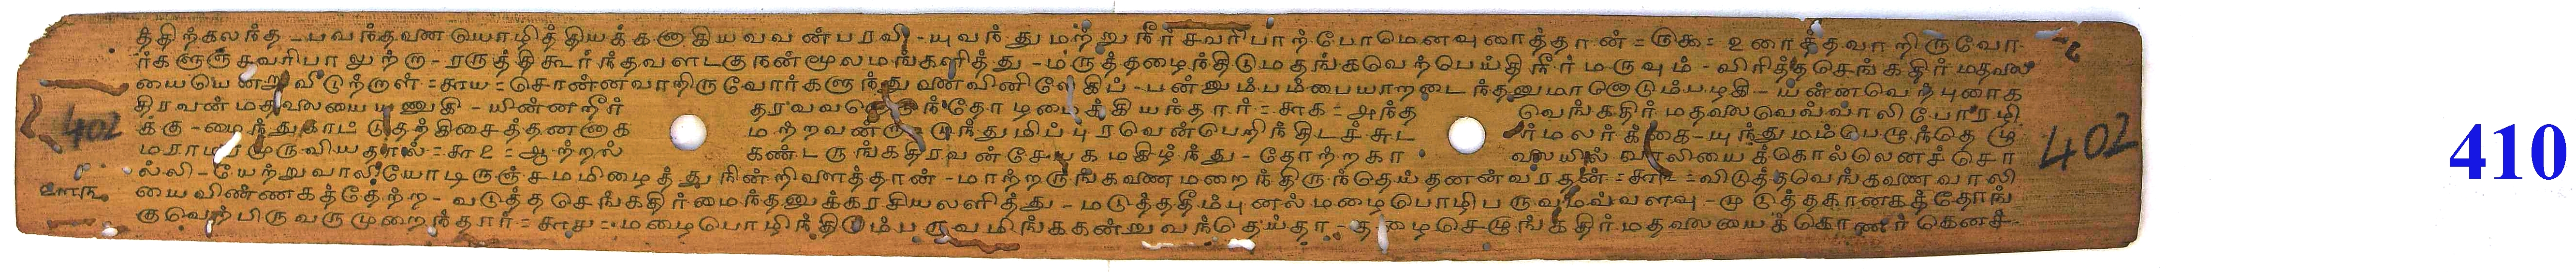 த்திற்கலந்த - பவந்தவணயொழித்தியக்கனாகியவவன்பரவி - யுவந்துமற்றுநீர்சவரிபாற்போமெனவுரைத்தான் = ருக = உரைத்தவாறிருவோ
ர்களுஞ்சவரிபாலுற்று - ரருத்திகூர்ந்தவளடகுநன்மூலமங்களித்து - மருத்தழைந்திடுமதங்கவெற்பெய்திநீர்மருவும் - விரித்தசெங்கதிர்மதலை
யையென்றுவிடுற்றாள் = சாய = சொன்னவாறிருவோர்களுந்துணவினிலேகிப் - பன்னும்பம்பையாறடைந்தனுமானொடும்பழகி - யன்னவெற்புறைக
திரவன்மதலையையணுகி - யின்னநீர் ந்தோழமைக்கியைந்தார் = சாக = அந்த வெங்கதிர்மதலைவெவ்வாலிபோரழி
க்கு - மைந்துகாட்டுதற்கிசைத்தனனாக மற்றவண்டு - துந்துமிப்புரவென்பெறிந்திடச்சுட ர்மலர்க்கை - யுந்துமம்பெழுந்தெழு
மராமரமுருவியதால் = சாஉ = ஆற்றல் கண்டருங்கதிரவன்சேயகமகிழ்ந்து - தோற்றகா லையில்வாலியைக்கொல்லெனச்சொ
ல்லி - யேற்றுவாலியோடிருஞ்சமமிழைத்துநின்றிளைத்தான் - மாற்றருங்கணைமறைந்திருந்தெய்தனன்வரதன் = சாங = விடுத்தவெங்கணைவாலி
யைவிண்ணகத்தேற்ற - வடுத்தசெங்கதிர்மைந்தனுக்கரசியலளித்து - மடுத்ததீம்புனல்மழைபொழிபருவமவ்வளவு - முடுத்தகானகத்தோங்
குவெற்பிருவருமுறைந்தார் = சாச = மழைபொழிந்திடும்பருவமிங்ககன்றுவந்தெய்தா - தழைசெழுங்கதிர்மதலையைக்கொணர்கெனச்
402
402
410